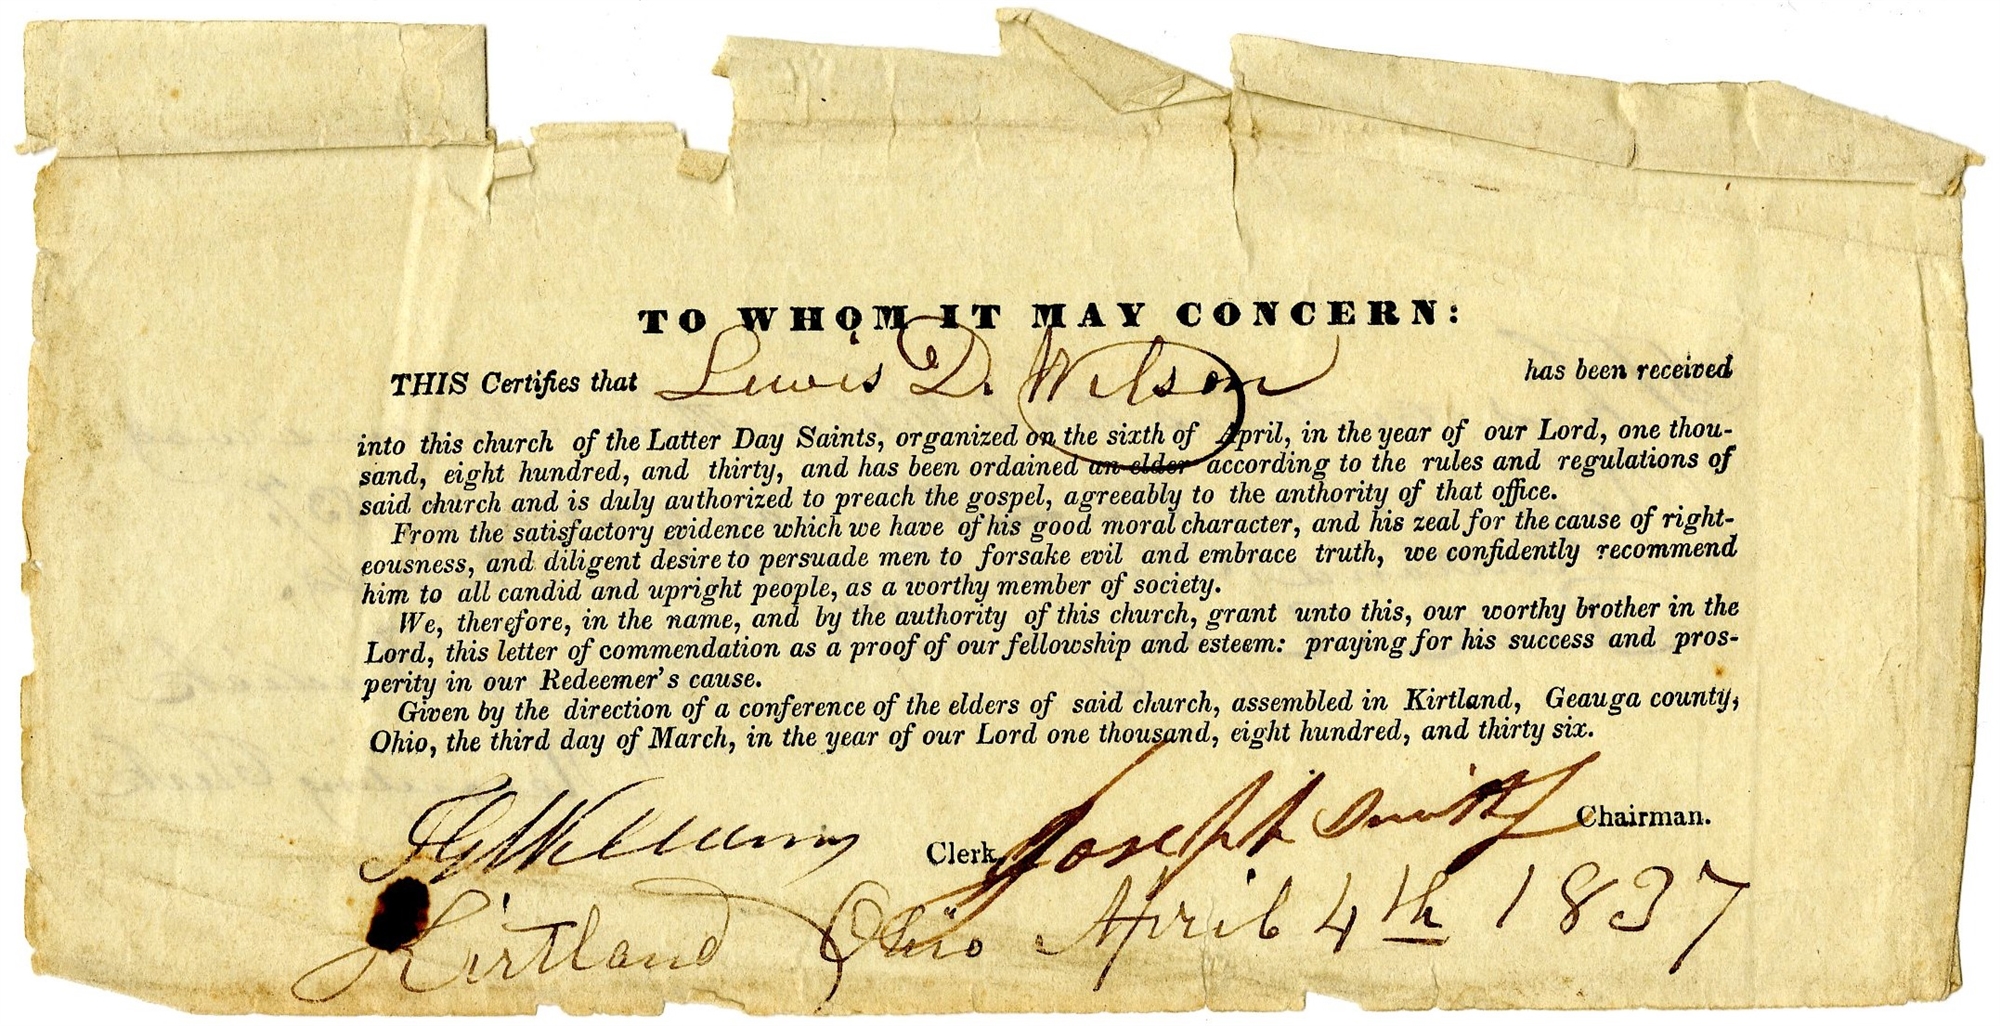 TO WHOM IT MAY CONCERN:
THIS Certifies that Lewis D. Wilson has been received
into this church of the Latter Day Saints, organized on the sixth of April, in the year of our Lord, one thou-
sand, eight hundred, and thirty, and has been ordained an elder according to the rules and regulations of
said church and is duly authorized to preach the gospel, agreeably to the anthority of that office.
From the satisfactory evidence which we have of his good moral character, and his zeal for the cause of right-
eousness, and diligent desire to persuade men to forsake evil and embrace truth, we confidently recommend
him to all candid and upright people, as a worthy member of society.
We, therefore, in the name, and by the authority of this church, grant unto this, our worthy brother in the
Lord, this letter of commendation as a proof of our fellowship and esteem: praying for his success and pros-
perity in our Redeemer's cause.
Given by the direction of a conference of the elders of said church, assembled in Kirtland, Geauga county,
Ohio, the third day of March, in the year of our Lord one thousand, eight hundred, and thirty six.
F G Williams Clerk, Joseph Smith Chairman.
Kirtland Ohio April 4th 1837